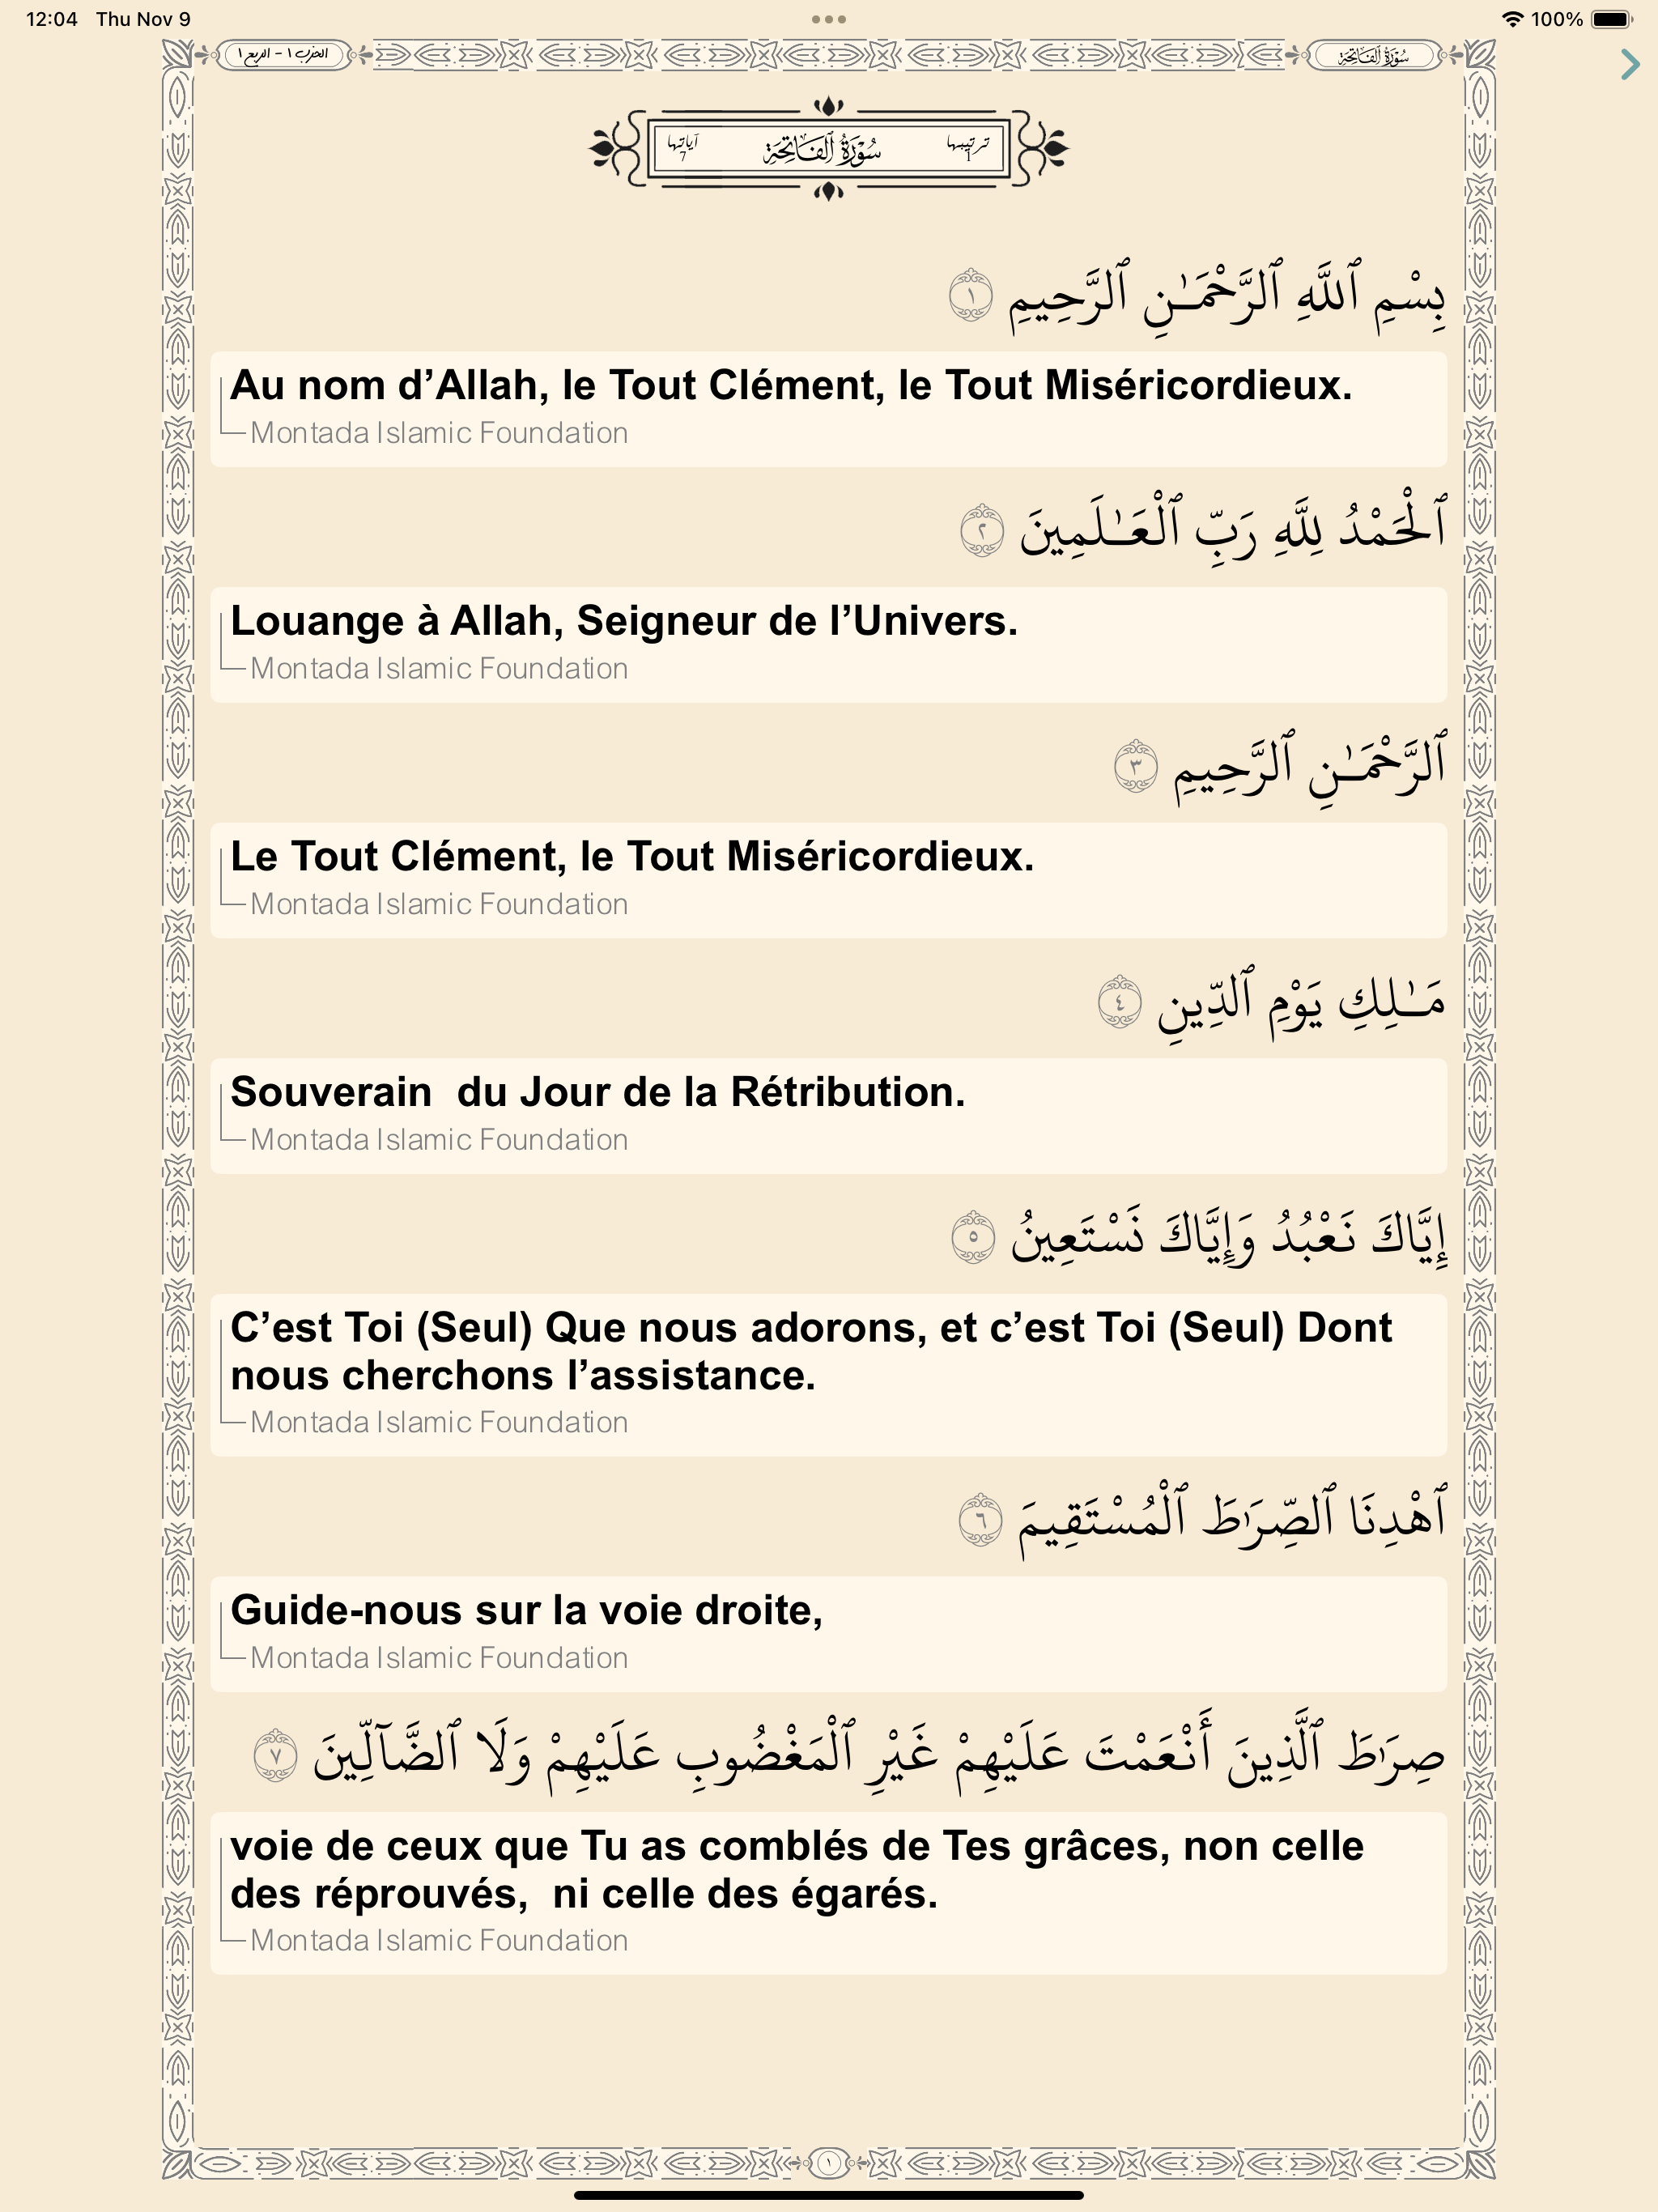 12:04 Thu Nov 9
100%
الحزب ١ - الربع ١
سُورَةُ ٱلفَاتِحَةِ
ترتيبها
1
سُورَةُ ٱلفَاتِحَةِ
آياتها
7
بِسْمِ ٱللَّهِ ٱلرَّحْمَـٰنِ ٱلرَّحِيمِ ١
Au nom d’Allah, le Tout Clément, le Tout Miséricordieux.
Montada Islamic Foundation
ٱلْحَمْدُ لِلَّهِ رَبِّ ٱلْعَـٰلَمِينَ ٢
Louange à Allah, Seigneur de l’Univers.
Montada Islamic Foundation
ٱلرَّحْمَـٰنِ ٱلرَّحِيمِ ٣
Le Tout Clément, le Tout Miséricordieux.
Montada Islamic Foundation
مَـٰلِكِ يَوْمِ ٱلدِّينِ ٤
Souverain  du Jour de la Rétribution.
Montada Islamic Foundation
إِيَّاكَ نَعْبُدُ وَإِيَّاكَ نَسْتَعِينُ ٥
C’est Toi (Seul) Que nous adorons, et c’est Toi (Seul) Dont
nous cherchons l’assistance.
Montada Islamic Foundation
ٱهْدِنَا ٱلصِّرَٰطَ ٱلْمُسْتَقِيمَ ٦
Guide-nous sur la voie droite,
Montada Islamic Foundation
صِرَٰطَ ٱلَّذِينَ أَنْعَمْتَ عَلَيْهِمْ غَيْرِ ٱلْمَغْضُوبِ عَلَيْهِمْ وَلَا ٱلضَّآلِّينَ ٧
voie de ceux que Tu as comblés de Tes grâces, non celle
des réprouvés,  ni celle des égarés.
Montada Islamic Foundation
١